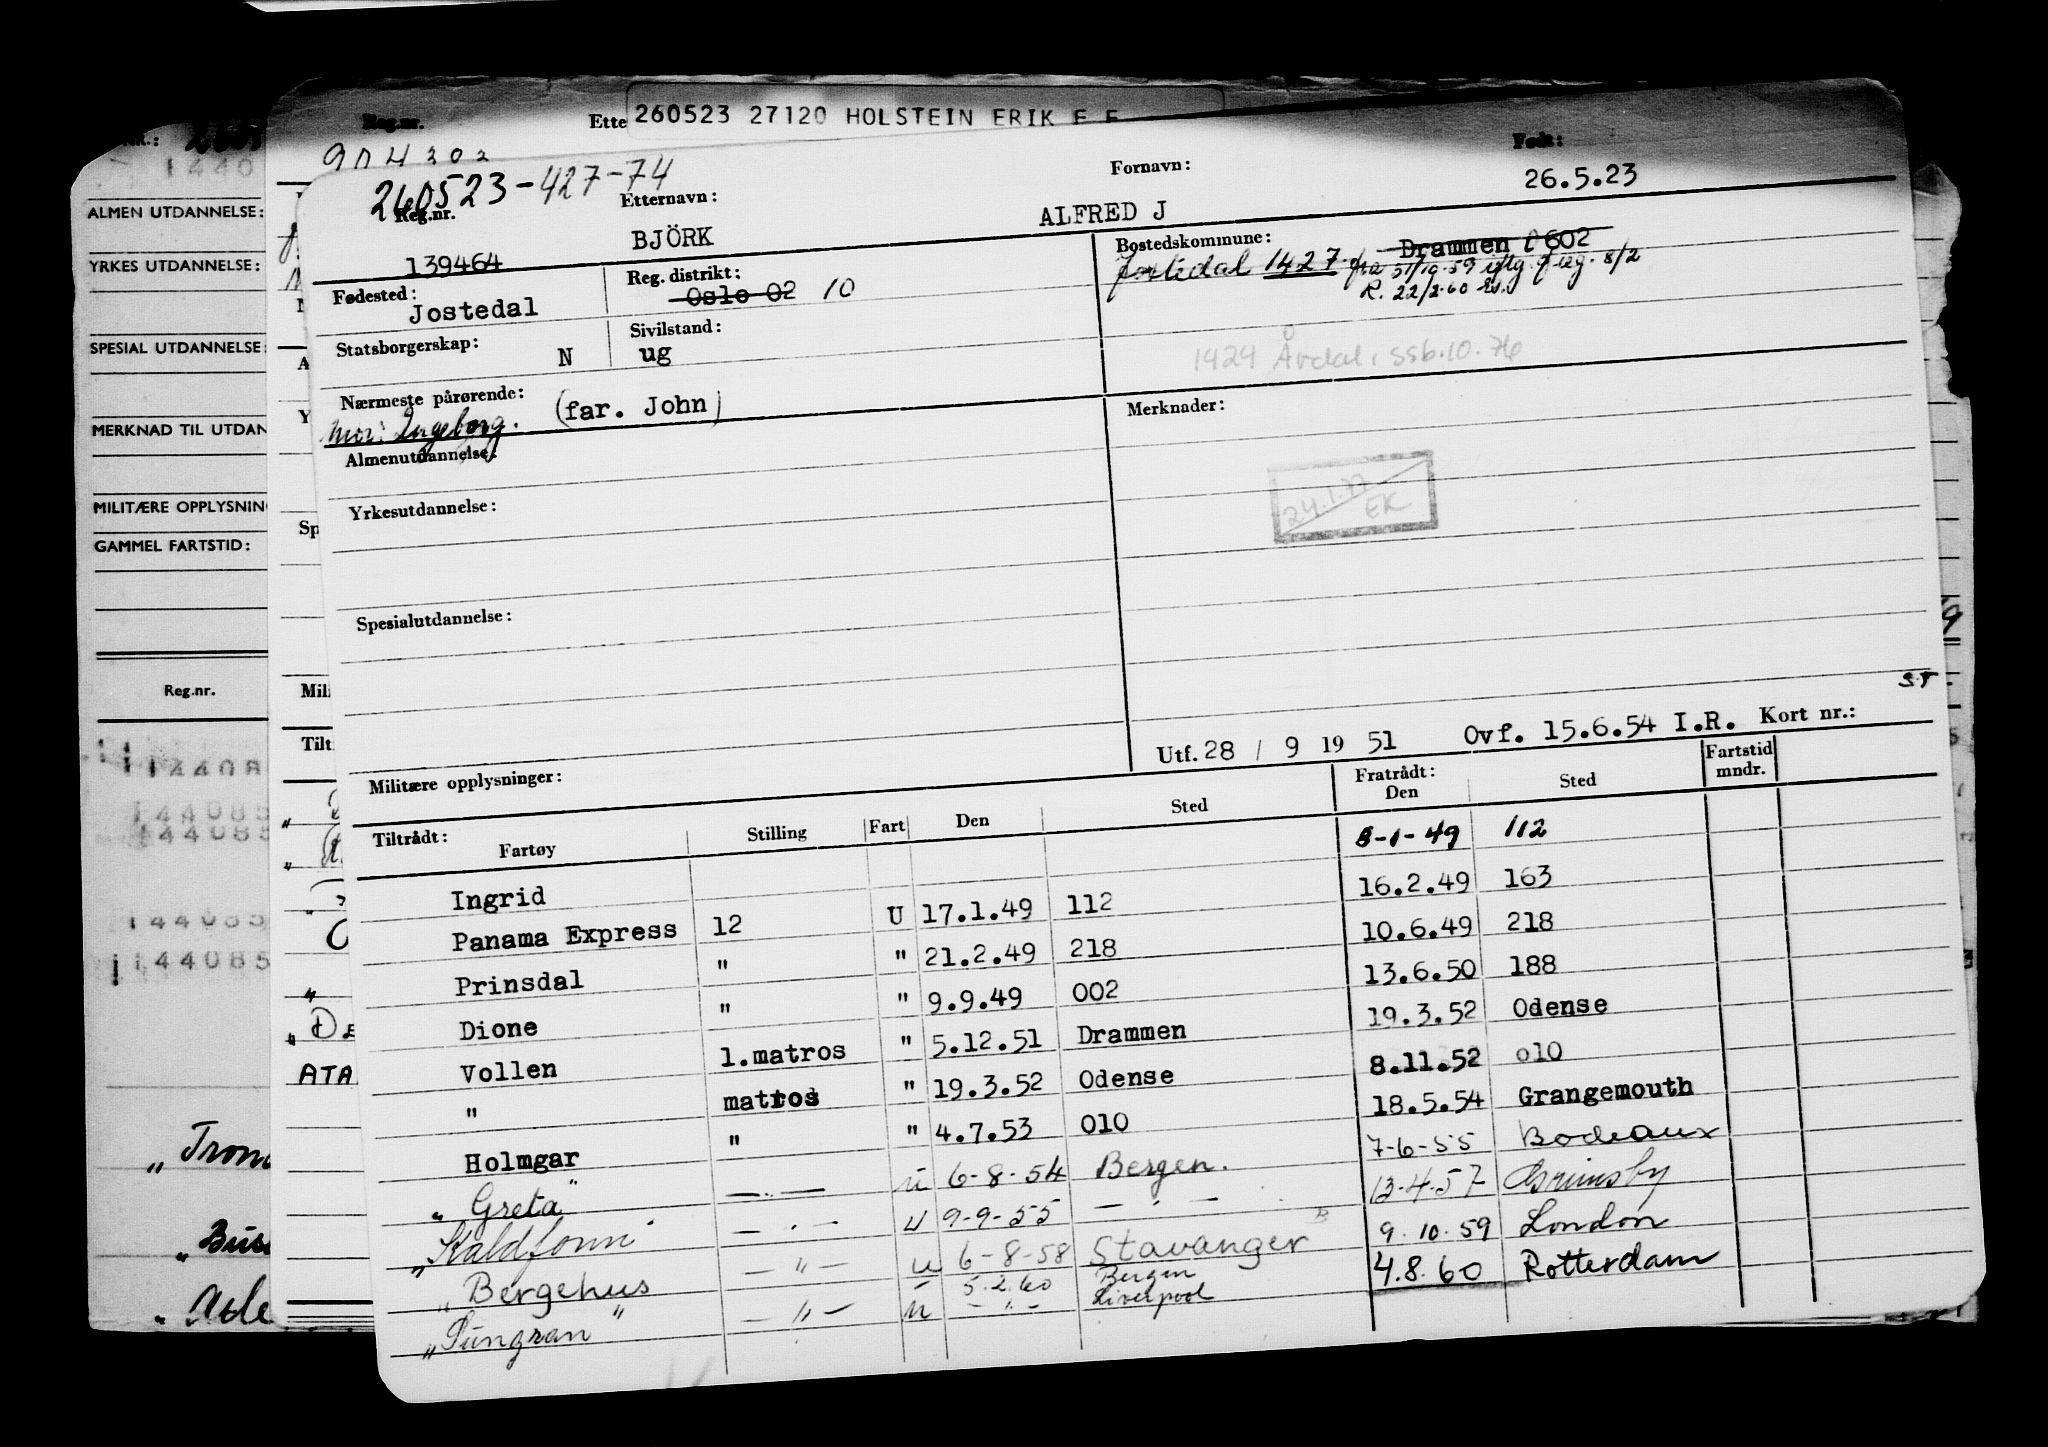 260523 27120 HOLSTEIN ERIK E F
Reg.nr. Ette Født:
260523-427-74
Reg.nr. Etternavn: Fornavn: 26.5.23
139464 BJÖRK ALFRED J
Fødested: Reg. distrikt: Bostedskommune: Drammen 0602
Jostedal Oslo 02 10 Jostedal 1427 fra 31/10.59 iflg.
R. 22/2.60
Statsborgerskap: N Sivilstand: ug
1424 Årdal, SSB.10.76
Nærmeste pårørende: (far. John) Merknader:
Mor: Ingeborg.
Almenutdannelse:
24.1.77
EK
Yrkesutdannelse:
Spesialutdannelse:
Utf. 28 / 9 19 51 Ovf. 15.6.54 I.R. Kort nr.:
Militære opplysninger:
Tiltrådt: Fratrådt: Fartstid
Fartøy Stilling Fart Den Sted Den Sted mndr.
Ingrid 8-1-49 112
Panama Express 12 U 17.1.49 112 16.2.49 163
Prinsdal " " 21.2.49 218 10.6.49 218
Dione " " 9.9.49 002 13.6.50 188
Vollen 1.matros " 5.12.51 Drammen 19.3.52 Odense
" matros " 19.3.52 Odense 8.11.52 010
Holmgar " " 4.7.53 010 18.5.54 Grangemouth
„ Greta " — " — u 6-8-54 Bergen. 7-6-55 Bodeaux
„Kaldfonn" — " — u 9-9-55 — " — 13-4-57 Grimsby
„ Bergehus — " — u 6-8-58 Stavanger 9.10.59 London
„Sungran " — " — u 5.2.60 Bergen 4.8.60 Rotterdam
— " — Liverpool
ALMEN UTDANNELSE:
YRKES UTDANNELSE:
SPESIAL UTDANNELSE:
MERKNAD TIL UTDAN
MILITÆRE OPPLYSNIN
GAMMEL FARTSTID:
Reg.nr.
14408
144085
144085
144085
144085
Sp
Mil
Tilt
ATA
„ Tron
„ Bus